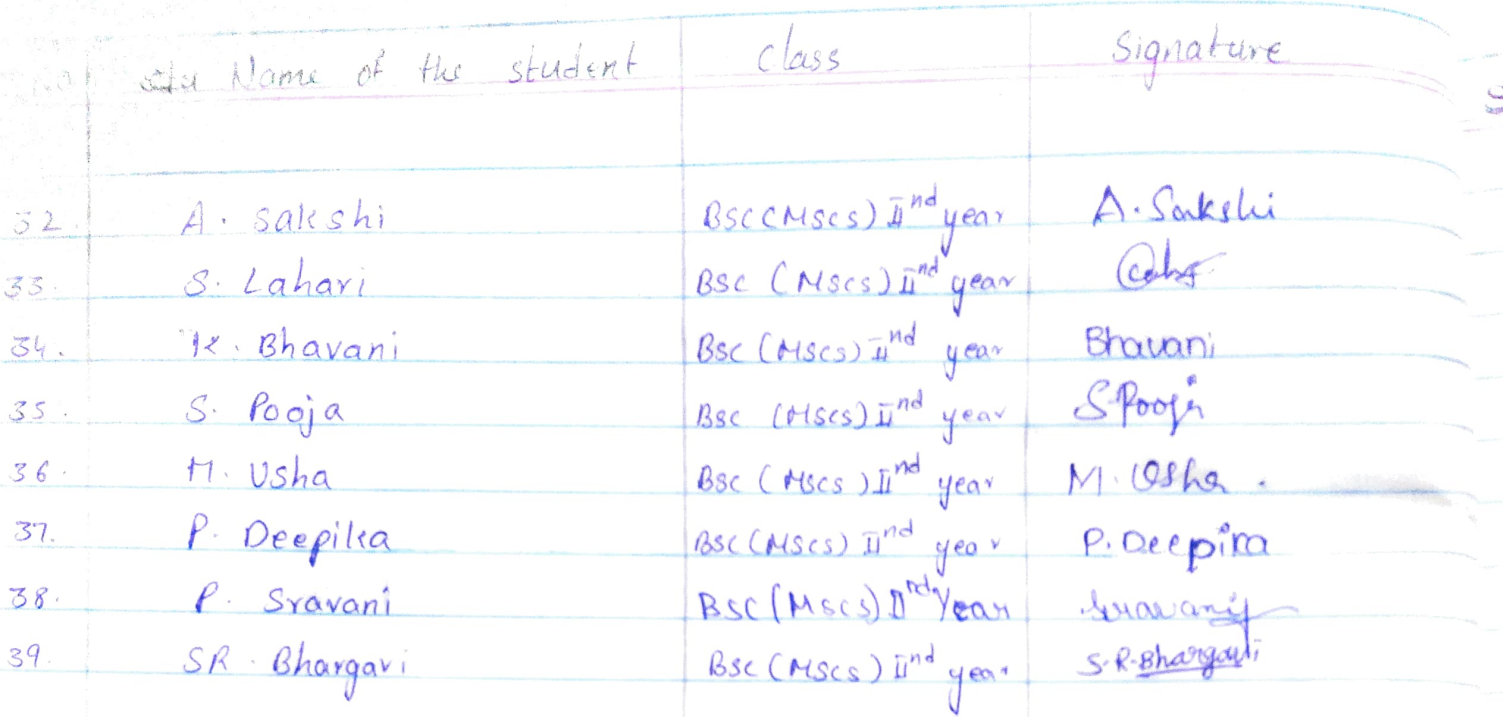 Name of the student Class Signature
32. A. Sakshi BSC (MSCS) IInd year A. Sakshi
33. S. Lahari BSC (MSCS) IInd year
34. K. Bhavani BSC (MSCS) IInd year Bhavani
35. S. Pooja BSC (MSCS) IInd year S Pooja
36. M. Usha BSC (MSCS) IInd year M. Usha.
37. P. Deepika BSC (MSCS) IInd year P. Deepika
38. P. Sravani BSC (MSCS) IInd Year Sravani
39. SR. Bhargavi BSC (MSCS) IInd year S.R. Bhargavi